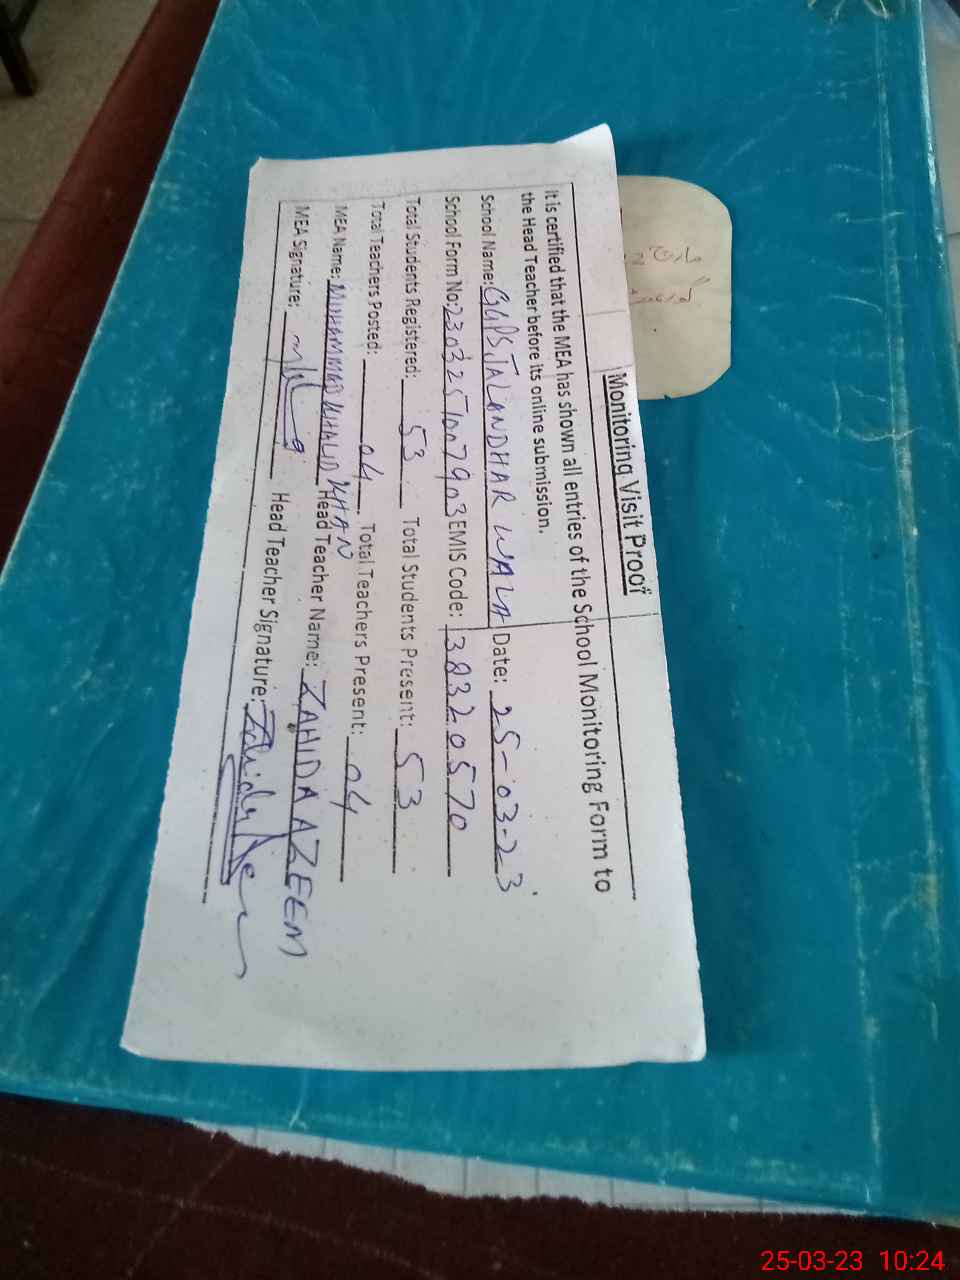 Monitoring Visit Proof
It is certified that the MEA has shown all entries of the School Monitoring Form to
the Head Teacher before its online submission.
School Name: GGPS, JALANDHAR WALA Date: 25-03-23
School Form No: 2303251007903 EMIS Code: 38320570
Total Students Registered: 53 Total Students Present: 53
Total Teachers Posted: 04 Total Teachers Present: 04
MEA Name: MUHAMMAD KHALID KHAN Head Teacher Name: ZAHIDA AZEEM
MEA Signature: Head Teacher Signature:
مارچ
25-03-23 10:24